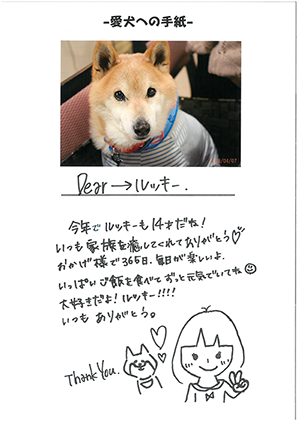 -愛犬への手紙-
Dear→ルッキー.
今年でルッキーも14才だね！
いつも家族を癒してくれてありがとう♡
おかげ様で365日、毎日が楽しいよ.
いっぱいご飯を食べてずっと元気でいてね☺
大好きだよ！ルッキー!!!!
いつもありがとう。
Thank You.